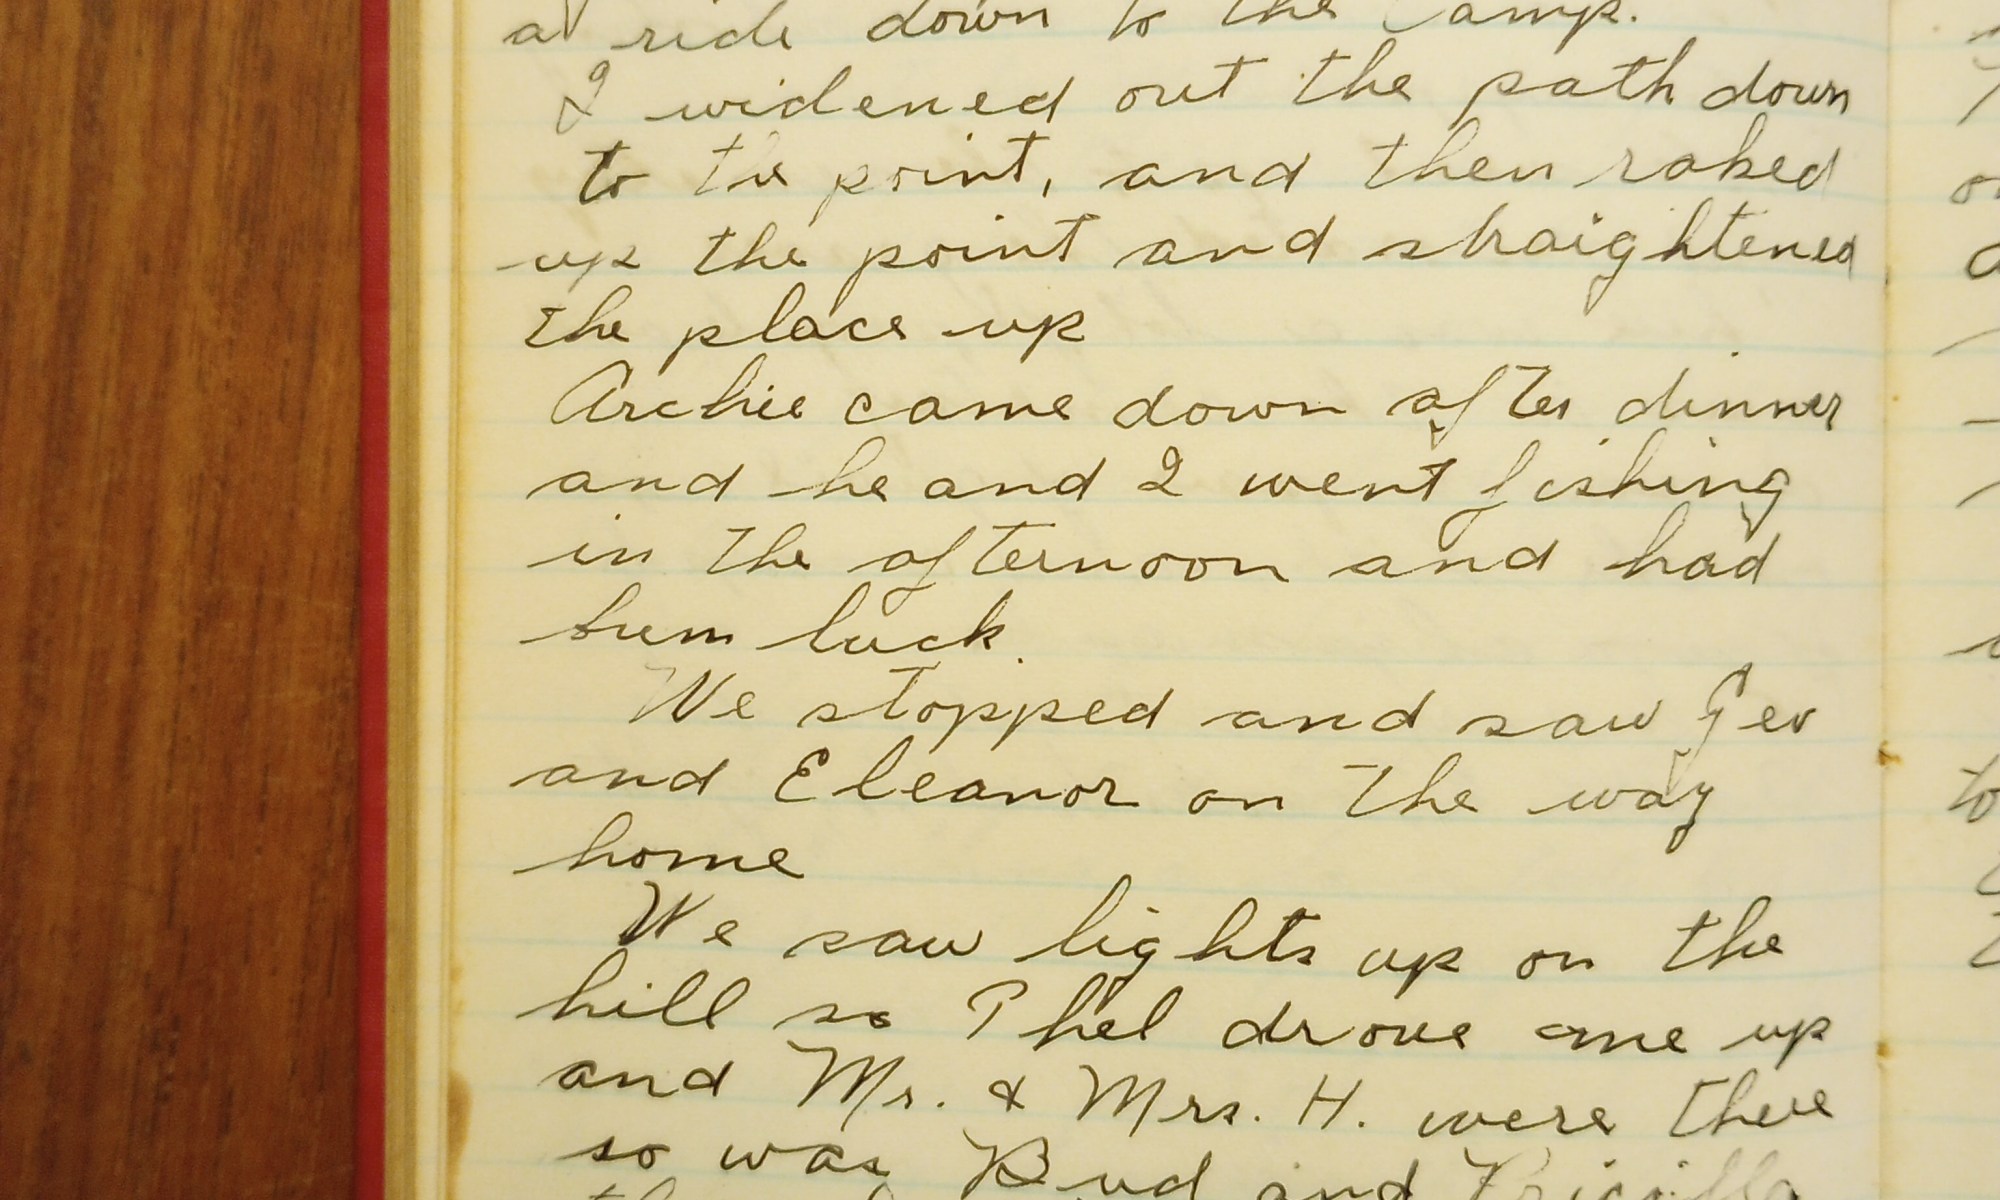 a ride down to the Camp.
I widened out the path down
to the point, and then raked
up the point and straightened
the place up
Archie came down after dinner
and he and I went fishing
in the afternoon and had
bum luck.
We stopped and saw Gev
and Eleanor on the way
home
We saw lights up on the
hill so Phel drove me up
and Mr. & Mrs. H. were there
so was Bud and Priscilla
to